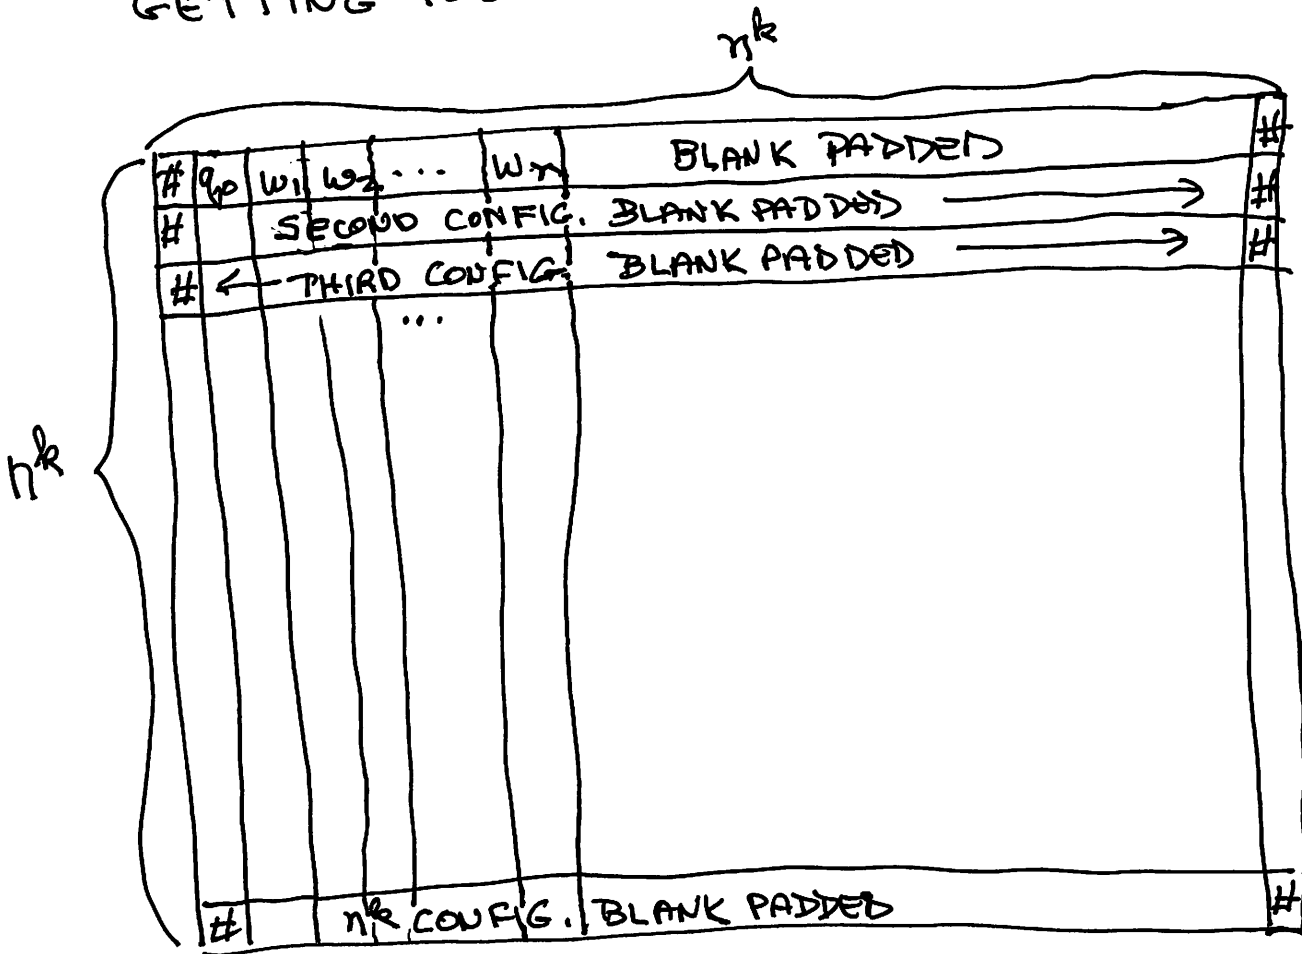 GETTING
n^k
# q₀ w₁ w₂ ... wₙ BLANK PADDED #
# SECOND CONFIG. BLANK PADDED → #
# ← THIRD CONFIG. BLANK PADDED → #
...
n^k
# n^k CONFIG. BLANK PADDED #